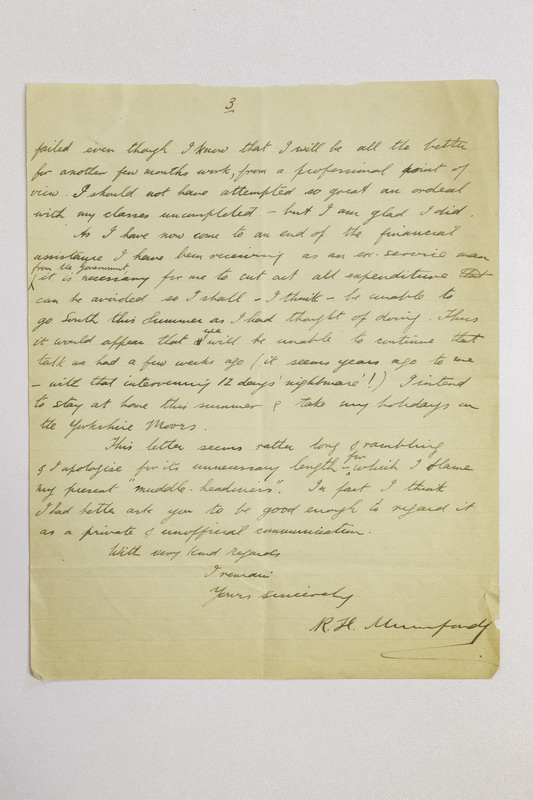 3
failed even though I know that I will be all the better
for another few months work, from a professional point of
view. I should not have attempted so great an ordeal
with my classes uncompleted – but I am glad I did.
As I have now come to an end of the financial
assistance I have been receiving as an ex-service man
from the Government
it is necessary for me to cut out all expenditure that
can be avoided so I shall – I think – be unable to
go South this Summer as I had thought of doing. Thus
it would appear that we will be unable to continue that
talk we had a few weeks ago (it seems years ago to me
– with that intervening 12 days' nightmare'!) I intend
to stay at home this summer & take my holidays on
the Yorkshire Moors.
This letter seems rather long & rambling
& I apologise for its unnecessary length – for which I blame
my present "muddle-headiness". In fact I think
I had better ask you to be good enough to regard it
as a private & unofficial communication.
With very kind regards
I remain
Yours sincerely
R. H. Mumford